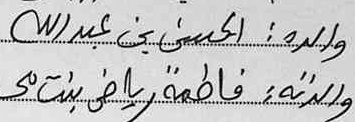 والده : الحسن بن عبد الله
والدته : فاطمة رياض بنت